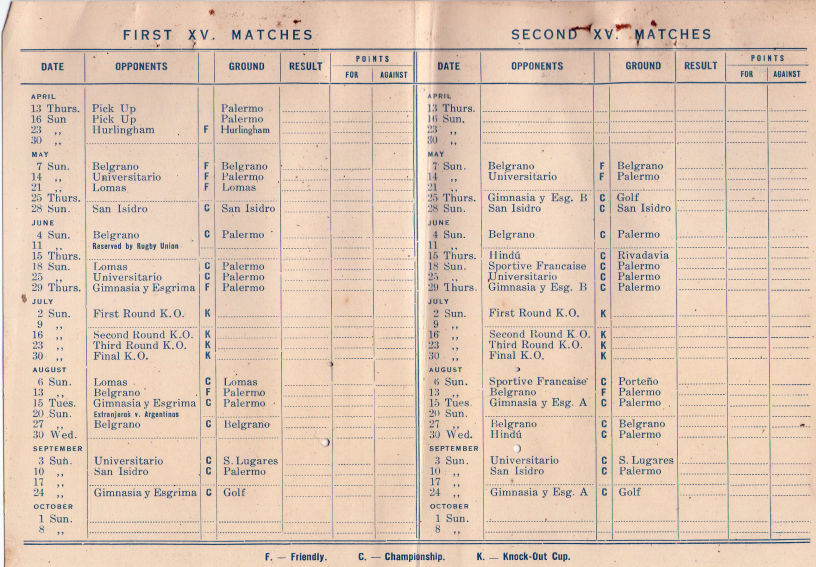 FIRST XV. MATCHES
DATE OPPONENTS GROUND RESULT POINTS FOR AGAINST
APRIL
13 Thurs. Pick Up Palermo
16 Sun Pick Up Palermo
23 ,, Hurlingham F Hurlingham
30 ,,
MAY
7 Sun. Belgrano F Belgrano
14 ,, Universitario F Palermo
21 ,, Lomas F Lomas
25 Thurs.
28 Sun. San Isidro C San Isidro
JUNE
4 Sun. Belgrano C Palermo
11 ,, Reserved by Rugby Union
15 Thurs.
18 Sun. Lomas C Palermo
25 ,, Universitario C Palermo
29 Thurs. Gimnasia y Esgrima F Palermo
JULY
2 Sun. First Round K.O. K
9 ,,
16 ,, Second Round K.O. K
23 ,, Third Round K.O. K
30 ,, Final K.O. K
AUGUST
6 Sun. Lomas C Lomas
13 ,, Belgrano F Palermo
15 Tues. Gimnasia y Esgrima C Palermo
20 Sun. Extranjeros v. Argentinos
27 ,, Belgrano C Belgrano
30 Wed.
SEPTEMBER
3 Sun. Universitario C S. Lugares
10 ,, San Isidro C Palermo
17 ,,
24 ,, Gimnasia y Esgrima C Golf
OCTOBER
1 Sun.
8 ,,
SECOND XV. MATCHES
DATE OPPONENTS GROUND RESULT POINTS FOR AGAINST
APRIL
13 Thurs.
16 Sun.
23 ,,
30 ,,
MAY
7 Sun. Belgrano F Belgrano
14 ,, Universitario F Palermo
21 ,,
25 Thurs. Gimnasia y Esg. B C Golf
28 Sun. San Isidro C San Isidro
JUNE
4 Sun. Belgrano C Palermo
11 ,,
15 Thurs. Hindú C Rivadavia
18 Sun. Sportive Francaise C Palermo
25 ,, Universitario C Palermo
29 Thurs. Gimnasia y Esg. B C Palermo
JULY
2 Sun. First Round K.O. K
9 ,,
16 ,, Second Round K.O. K
23 ,, Third Round K.O. K
30 ,, Final K.O. K
AUGUST
6 Sun. Sportive Francaise C Porteño
13 ,, Belgrano F Palermo
15 Tues. Gimnasia y Esg. A C Palermo
20 Sun.
27 ,, Belgrano C Belgrano
30 Wed. Hindú C Palermo
SEPTEMBER
3 Sun. Universitario C S. Lugares
10 ,, San Isidro C Palermo
17 ,,
24 ,, Gimnasia y Esg. A C Golf
OCTOBER
1 Sun.
8 ,,
F. — Friendly. C. — Championship. K. — Knock-Out Cup.